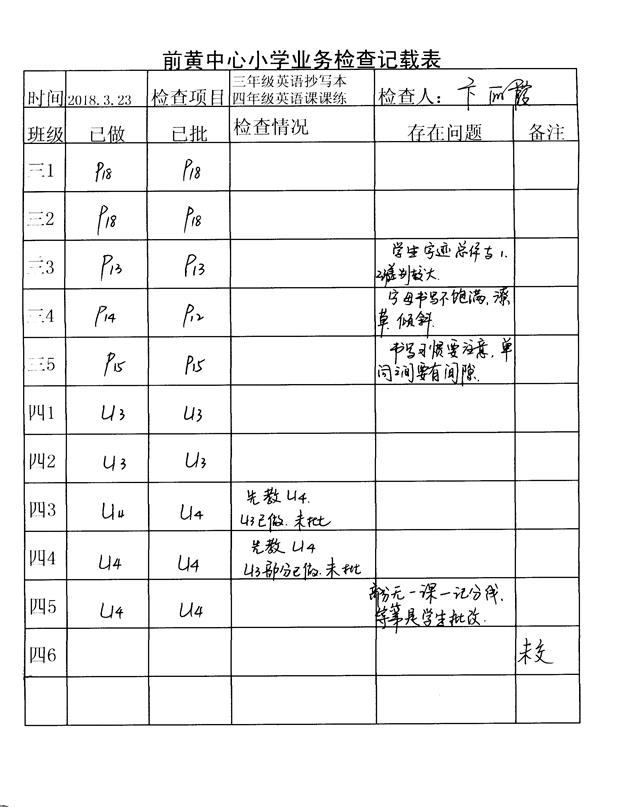 前黄中心小学业务检查记载表
时间 2018.3.23 检查项目 三年级英语抄写本 检查人: 卞丽霞
四年级英语课课练
班级 已做 已批 检查情况 存在问题 备注
三1 P18 P18
三2 P18 P18
三3 P13 P13 学生字迹总体
差别较大.
三4 P14 P12 字母书写不饱满, 潦
草. 倾斜.
三5 P15 P15 书写习惯要注意, 单
词之间要有间隙.
四1 U3 U3
四2 U3 U3
四3 U4 U4 先教U4.
U3已做. 未批
四4 U4 U4 先教U4
U3部分已做. 未批
四5 U4 U4 部分无一课一记分栈,
等第是学生批改.
四6 未交